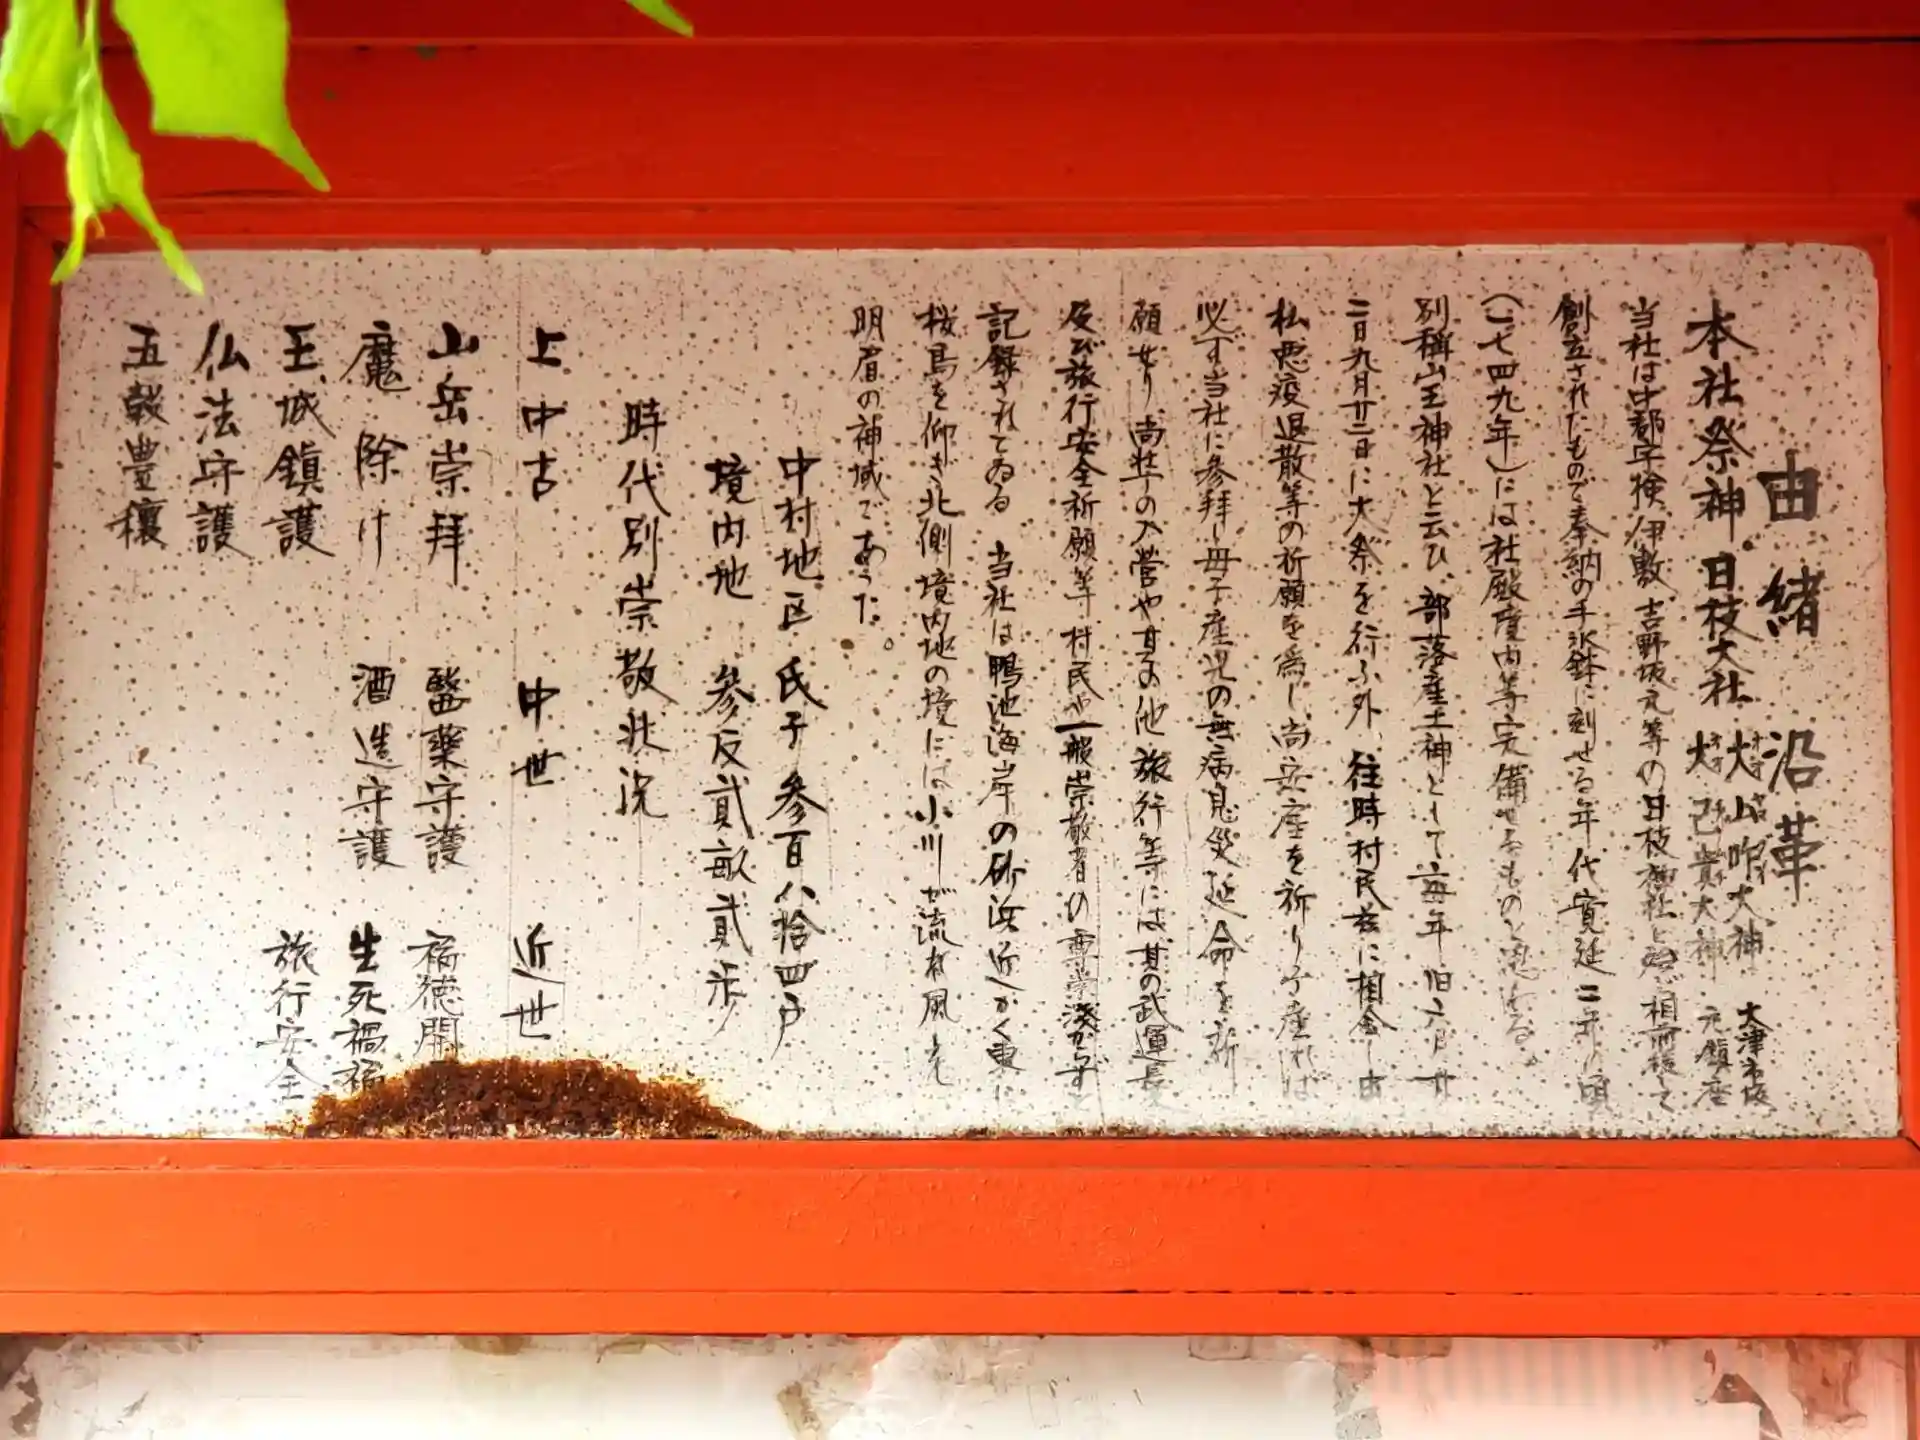 由緒沿革
本社祭神日枝大社 大山咋大神 大津市坂
大己貴大神 元鎮座
当社は中郡字検伊敷吉野坂元等の日枝神社と 相前後して
創立されたもので奉納の手水鉢に刻せる年代寛延二年の頃
(一七四九年)には社殿庭内等完備せるものと思わる。
別稱山王神社と云ひ 部落産土神として毎年旧六月廿
二日九月廿二日に大祭を行ふ外 往時村民茲に相會し虫
払悪疫退散等の祈願を為し尚安産を祈り子産れば
必ず当社に参拝し母子産児の無病息災延命を祈
願せり 尚壮丁の入営や其の他旅行等には其の武運長
及び旅行安全祈願等村民や一般崇敬者の尊崇浅からずと
記録されてゐる 当社は鴨池海岸の砂浜近かく東に
桜島を仰ぎ北側境内地の境には小川が流れ風光
明眉の神域であった。
中村地区氏子参百八拾四戸
境内地 参反貳畝貳歩
時代別崇敬状況
上中古 中世 近世
山岳崇拜 醫薬守護 福徳開
魔除け 酒造守護 生死禍福
王城鎮護 旅行安全
仏法守護
五穀豊穰